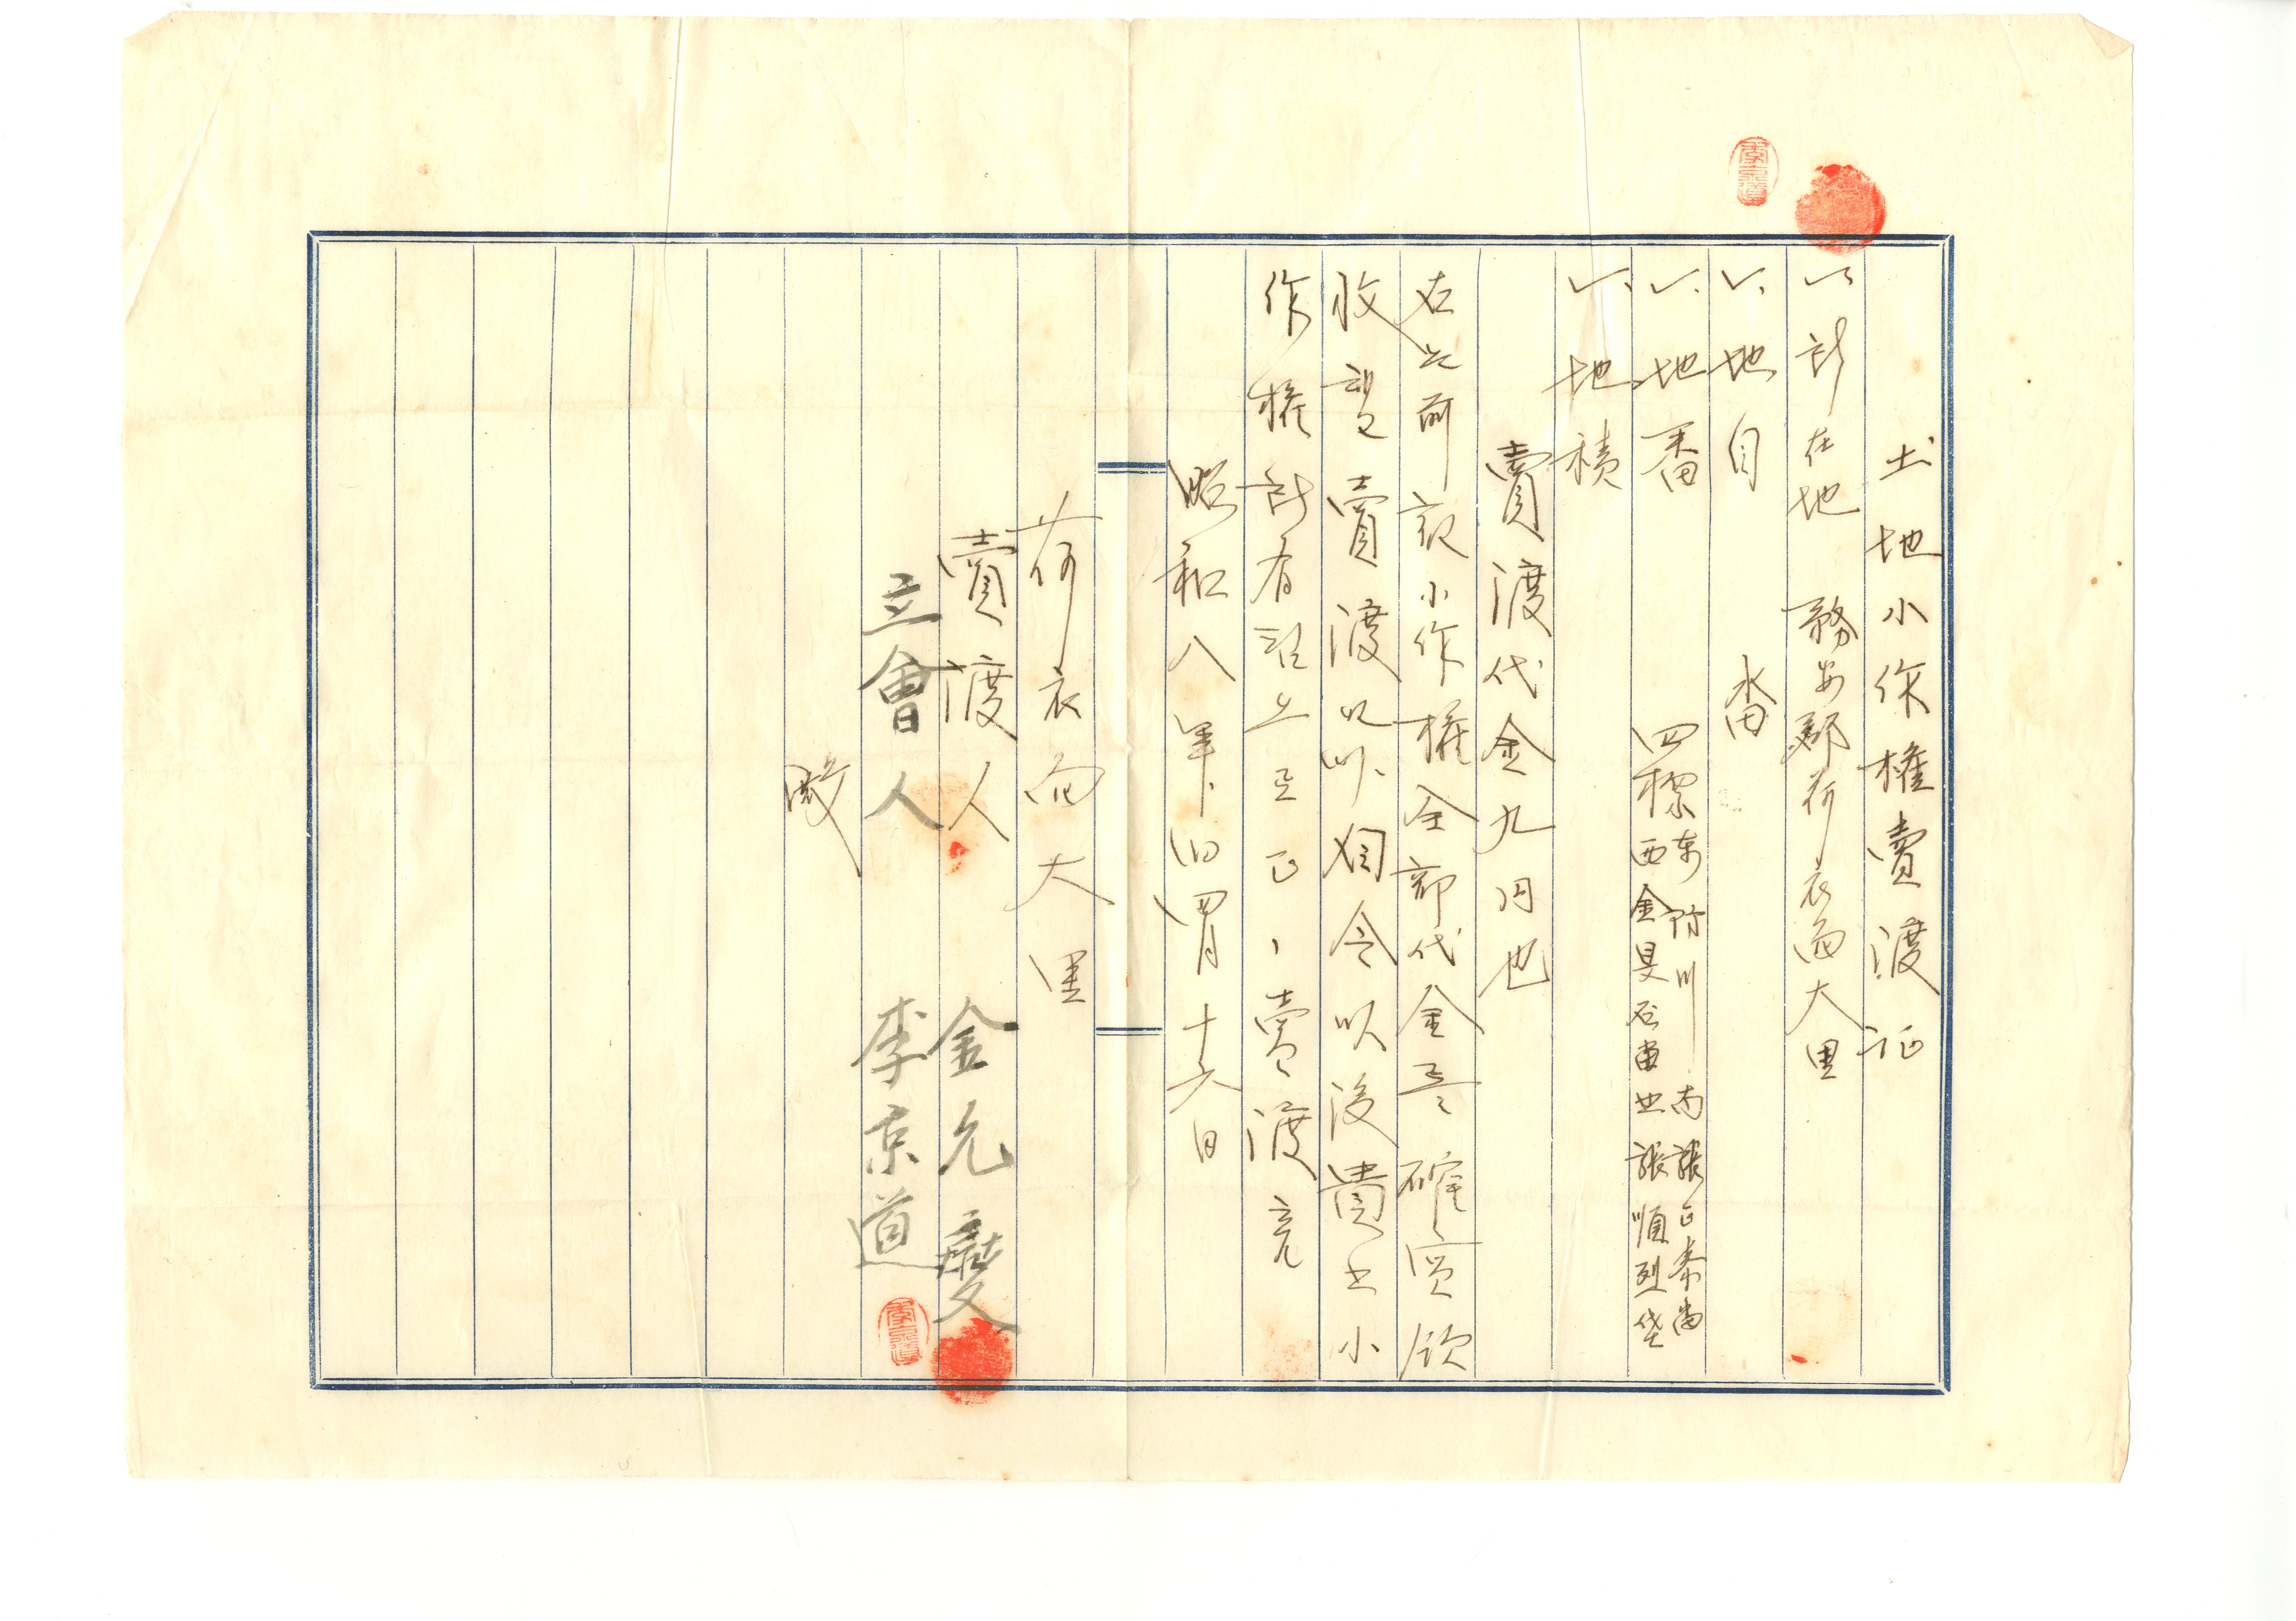 土地小作權賣渡証
一、所在地 務安郡荷衣面大里
一、地目 畓
一、地番 四標 東 防川 南 張正泰畓
西 金旻石畓 北 張順烈垈
一、地積
賣渡代金九円也
右之前記小作權全部代金은 確實領
收 賣渡 今以後 貴 小
作權所有 証 賣渡
昭和八年旧四月十六日
荷衣面大里
賣渡人 金允慶
立會人 李京道
殿